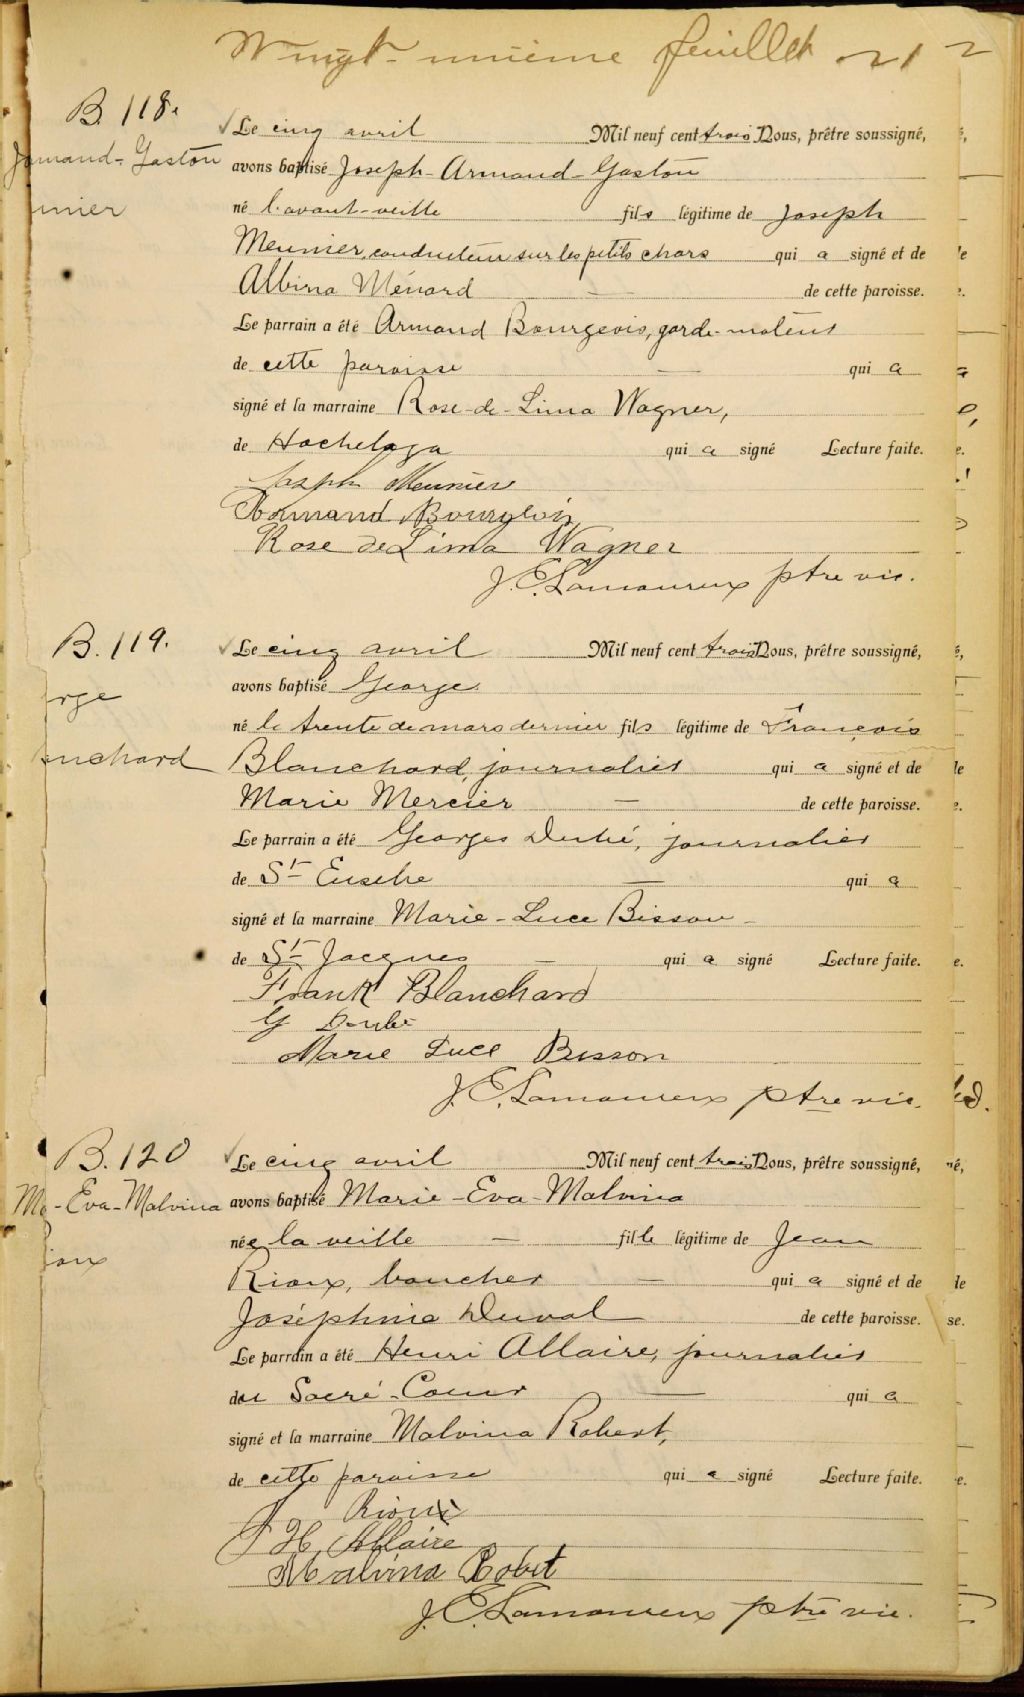 Vingt-unième feuillet 21
B. 118.
Armand-Gaston
unier
Le cinq avril Mil neuf cent trois Nous, prêtre soussigné,
avons baptisé Joseph-Armand-Gaston
né l'avant-veille fils légitime de Joseph
Meunier, conducteur sur les petits chars qui a signé et de
Albina Ménard — de cette paroisse.
Le parrain a été Armand Bourgeois, garde-moteur
de cette paroisse — qui a
signé et la marraine Rose-de-Lima Wagner,
de Hochelaga qui a signé Lecture faite.
Joseph Meunier
Armand Bourgeois
Rose de Lima Wagner
J.E. Lamoureux ptre vic.
B. 119.
rge
anchard
Le cinq avril Mil neuf cent trois Nous, prêtre soussigné,
avons baptisé George
né le trente de mars dernier fils légitime de François
Blanchard, journalier qui a signé et de
Marie Mercier — de cette paroisse.
Le parrain a été Georges Dubé, journalier
de St Eusèbe — qui a
signé et la marraine Marie-Luce Bisson —
de St Jacques — qui a signé Lecture faite.
Frank Blanchard
G
Marie Luce Bisson
J.E. Lamoureux ptre vic.
B. 120
Me-Eva-Malvina
ioux
Le cinq avril Mil neuf cent trois Nous, prêtre soussigné,
avons baptisé Marie-Eva-Malvina
née la veille — fille légitime de Jean
Rioux, boucher — qui a signé et de
Joséphine Duval de cette paroisse.
Le parrain a été Henri Allaire, journalier
du Sacré-Coeur — qui a
signé et la marraine Malvina Robert,
de cette paroisse qui a signé Lecture faite.
J Rioux
H. Allaire
Malvina Robert
J.E. Lamoureux ptre vic.